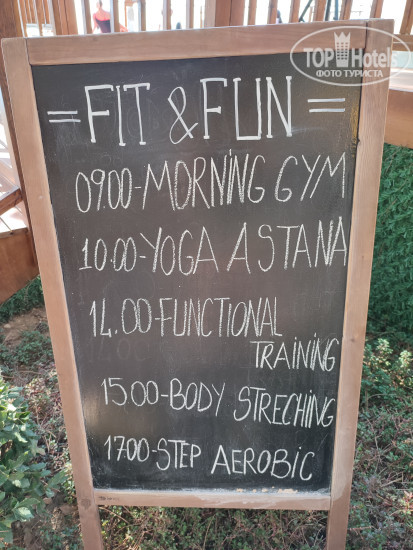 TOP Hotels
ФОТО ТУРИСТА
= FIT & FUN =
09.00-MORNING GYM
10.00-YOGA ASTANA
14.00-FUNCTIONAL
TRAINING
15.00-BODY STRECHING
17.00-STEP AEROBIC